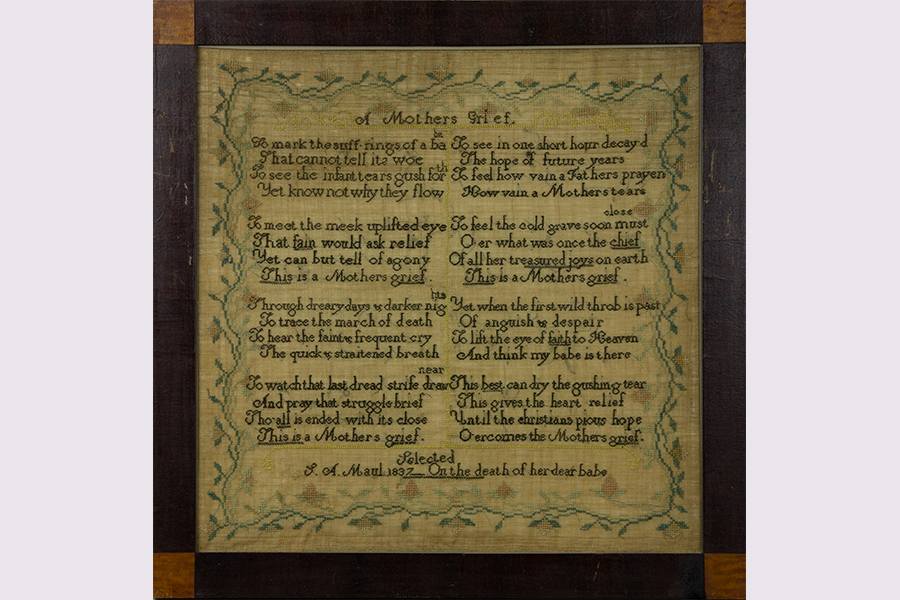 A Mothers Grief.
To mark the suff-rings of a babe
That cannot tell its woe
To see the infant tears gush forth
Yet know not why they flow
To meet the meek uplifted eye
That fain would ask relief
Yet can but tell of agony
This is a Mothers grief.
Through dreary days & darker nights
To trace the march of death
To hear the faint & frequent cry
The quick & straitened breath
To watch that last dread strife draw near
And pray that struggle brief
Tho all is ended with its close
This is a Mothers grief.
To see in one short hour decay'd
The hope of future years
To feel how vain a Fathers prayer
How vain a Mothers tears
To feel the cold grave soon must close
O er what was once the chief
Of all her treasured joys on earth
This is a Mothers grief.
Yet when the first wild throb is past
Of anguish & despair
To lift the eye of faith to Heaven
And think my babe is there
This best can dry the gushing tear
This gives the heart relief
Until the christians pious hope
O ercomes the Mothers grief.
Selected
S. A. Maul 1837 On the death of her dear babe